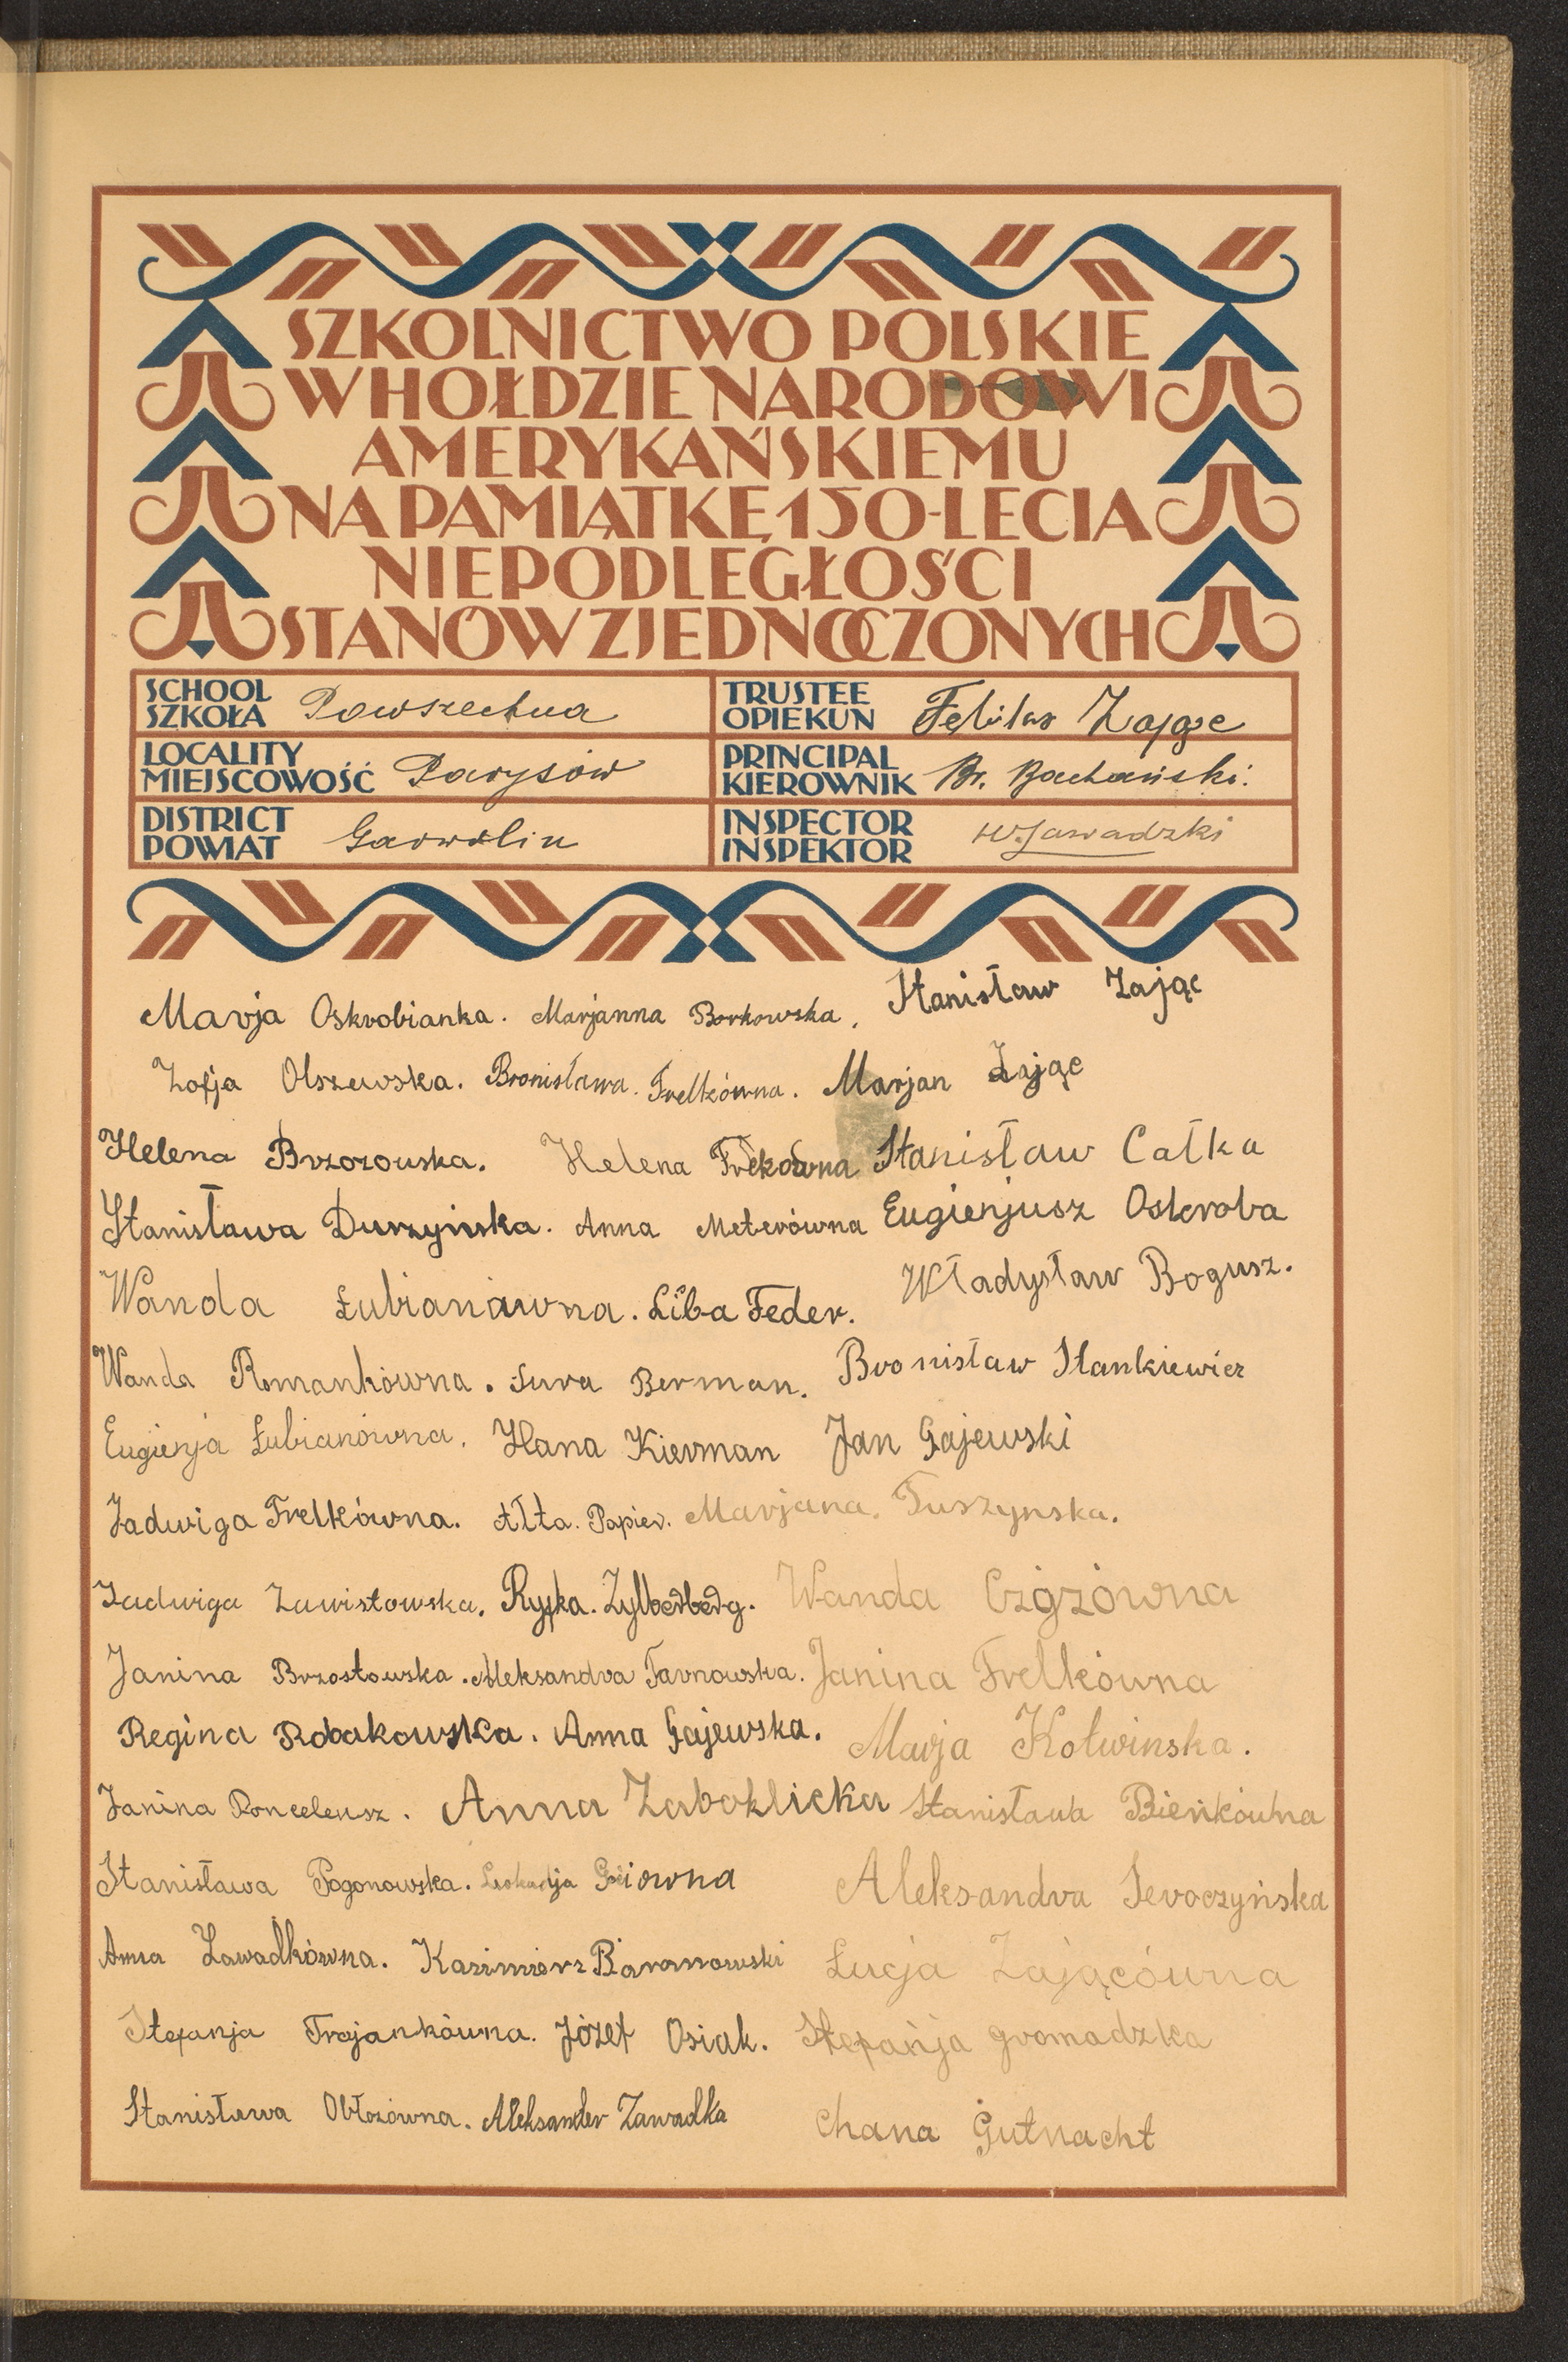 SZKOLNICTWO POLSKIE
W HOŁDZIE NARODOWI
AMERYKAŃSKIEMU
NA PAMIĄTKĘ 150-LECIA
NIEPODLEGŁOŚCI
STANÓW ZJEDNOCZONYCH
SCHOOL SZKOŁA Powszechna
TRUSTEE OPIEKUN Zając
LOCALITY MIEJSCOWOŚĆ Parysów
PRINCIPAL KIEROWNIK Br. Bachański.
DISTRICT POWIAT Garwolin
INSPECTOR INSPEKTOR W. Zawadzki
Marja Oskrobianka. Marjanna Borkowska. Stanisław Zając
Zofja Olszewska. Bronisława. Frelkówna. Marjan Zając
Helena Brzozowska. Helena Stanisław Całka
Stanisława Durzyńska. Anna Meterówna Eugienjusz Oskroba
Wanda Łubianówna. Liba Feder. Władysław Bogusz.
Wanda Romankówna. Sura Berman. Bronisław Stankiewicz
Eugienja Łubianówna. Hana Kierman Jan Gajewski
Jadwiga Frelkówna. Ałta. Papier. Marjana. Tuszynska.
Jadwiga Zawistowska. Ryfka. Zylberberg. Wanda
Janina Brzostowska. Aleksandra Tarnowska. Janina Frelkówna
Regina Robakowska. Anna Gajewska. Marja Kotwinska.
Janina Ronceleusz. Anna Zaboklicka Stanisława Bieńkówna
Stanisława Pogonowska. Leokadja Aleksandra Seroczyńska
Anna Zawadkówna. Kazimierz Baranowski Łucja Zającówna
Stefanja Trojankówna. Józef Osiak. Stefanja gromadzka
Stanisława Obłozówna. Aleksander Zawadka Chana Gutnacht